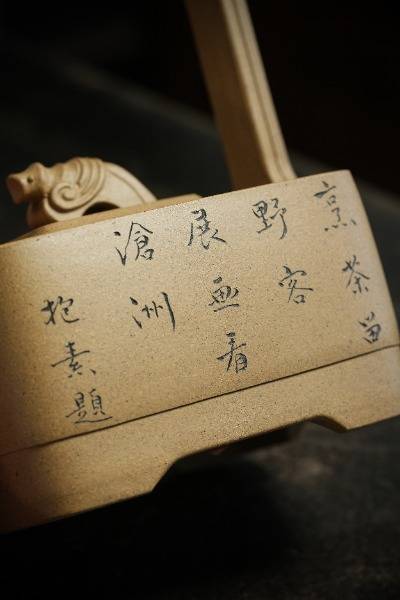 烹茶留
野客
展画看
滄洲
抱素題